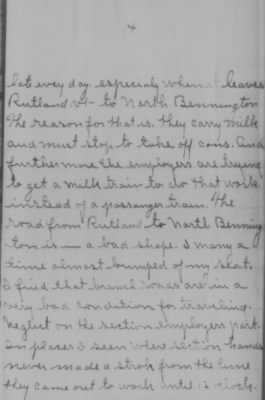 4
late evey day. especialy when it leaves
Rutland vt- to North Bennington
The reason for that is. they carry milk.
and must stop to take off cans. And
furthermore the employers are trying
to get a milk train to do that work
instead of a passanger train. The
road from Rutland to North Benning
-ton is in a bad shape. I many a
time almost bumped of my seat.
I find that branch roads are in a
very bad condition for traveling.
Neglect on the section employers part.
In places I seen where section hands
never made a strok from the time
they came out to work until 12 clock.